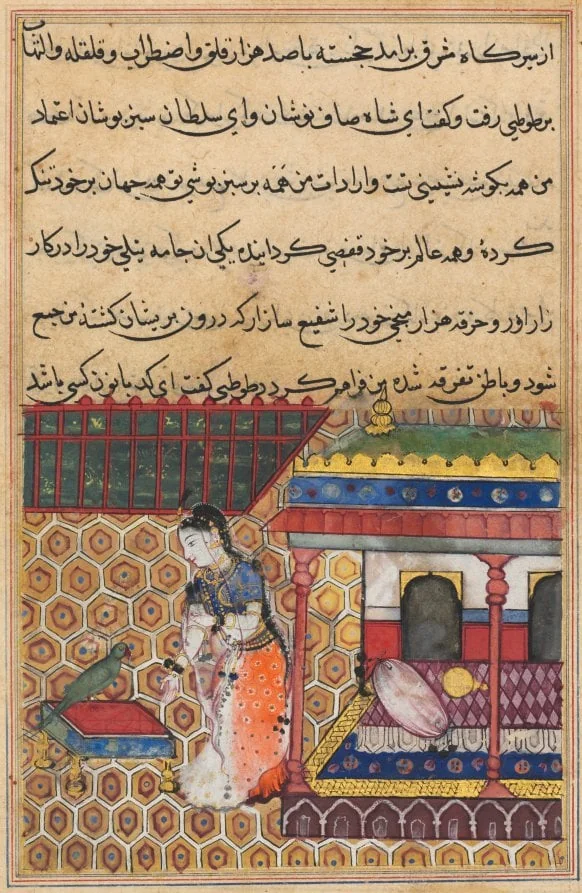 از سیر کاه مشرق برامد خجسته باصد هزار قلق و اضطراب و قلقله و التهاب
بر طوطی رفت و کفت ای شاه صاف نوشان و ای سلطان سبز بوشان اعتماد
من همه بکوشه نشینی تست و ارادات من همه بر سبز بوشی تو همه جهان بر خود تنک
کردهٔ و همه عالم بر خود قفصی کردانیده یکی ان جامه نیلی خود را در کار
زار اور و خرقه هزار میخی خود را شفیع ساز تا رکه درون بریشان کشتهٔ من جمع
شود و باطن تفرقه شده من فراهم کردد طوطی کفت ای کدبانو کسی باشد